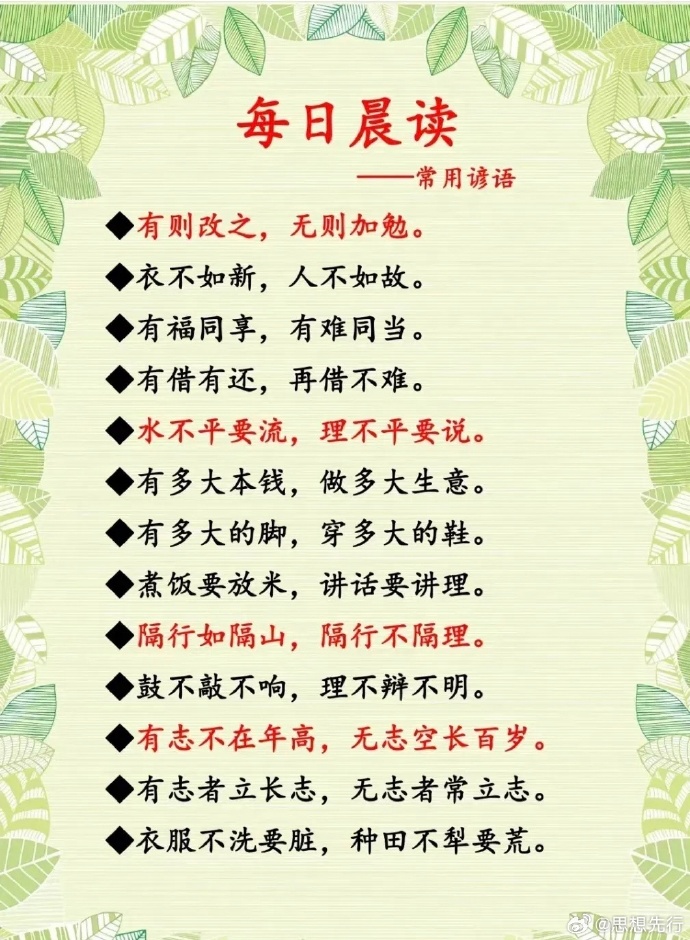 每日晨读
——常用谚语
◆有则改之，无则加勉。
◆衣不如新，人不如故。
◆有福同享，有难同当。
◆有借有还，再借不难。
◆水不平要流，理不平要说。
◆有多大本钱，做多大生意。
◆有多大的脚，穿多大的鞋。
◆煮饭要放米，讲话要讲理。
◆隔行如隔山，隔行不隔理。
◆鼓不敲不响，理不辩不明。
◆有志不在年高，无志空长百岁。
◆有志者立长志，无志者常立志。
◆衣服不洗要脏，种田不犁要荒。
@思想先行